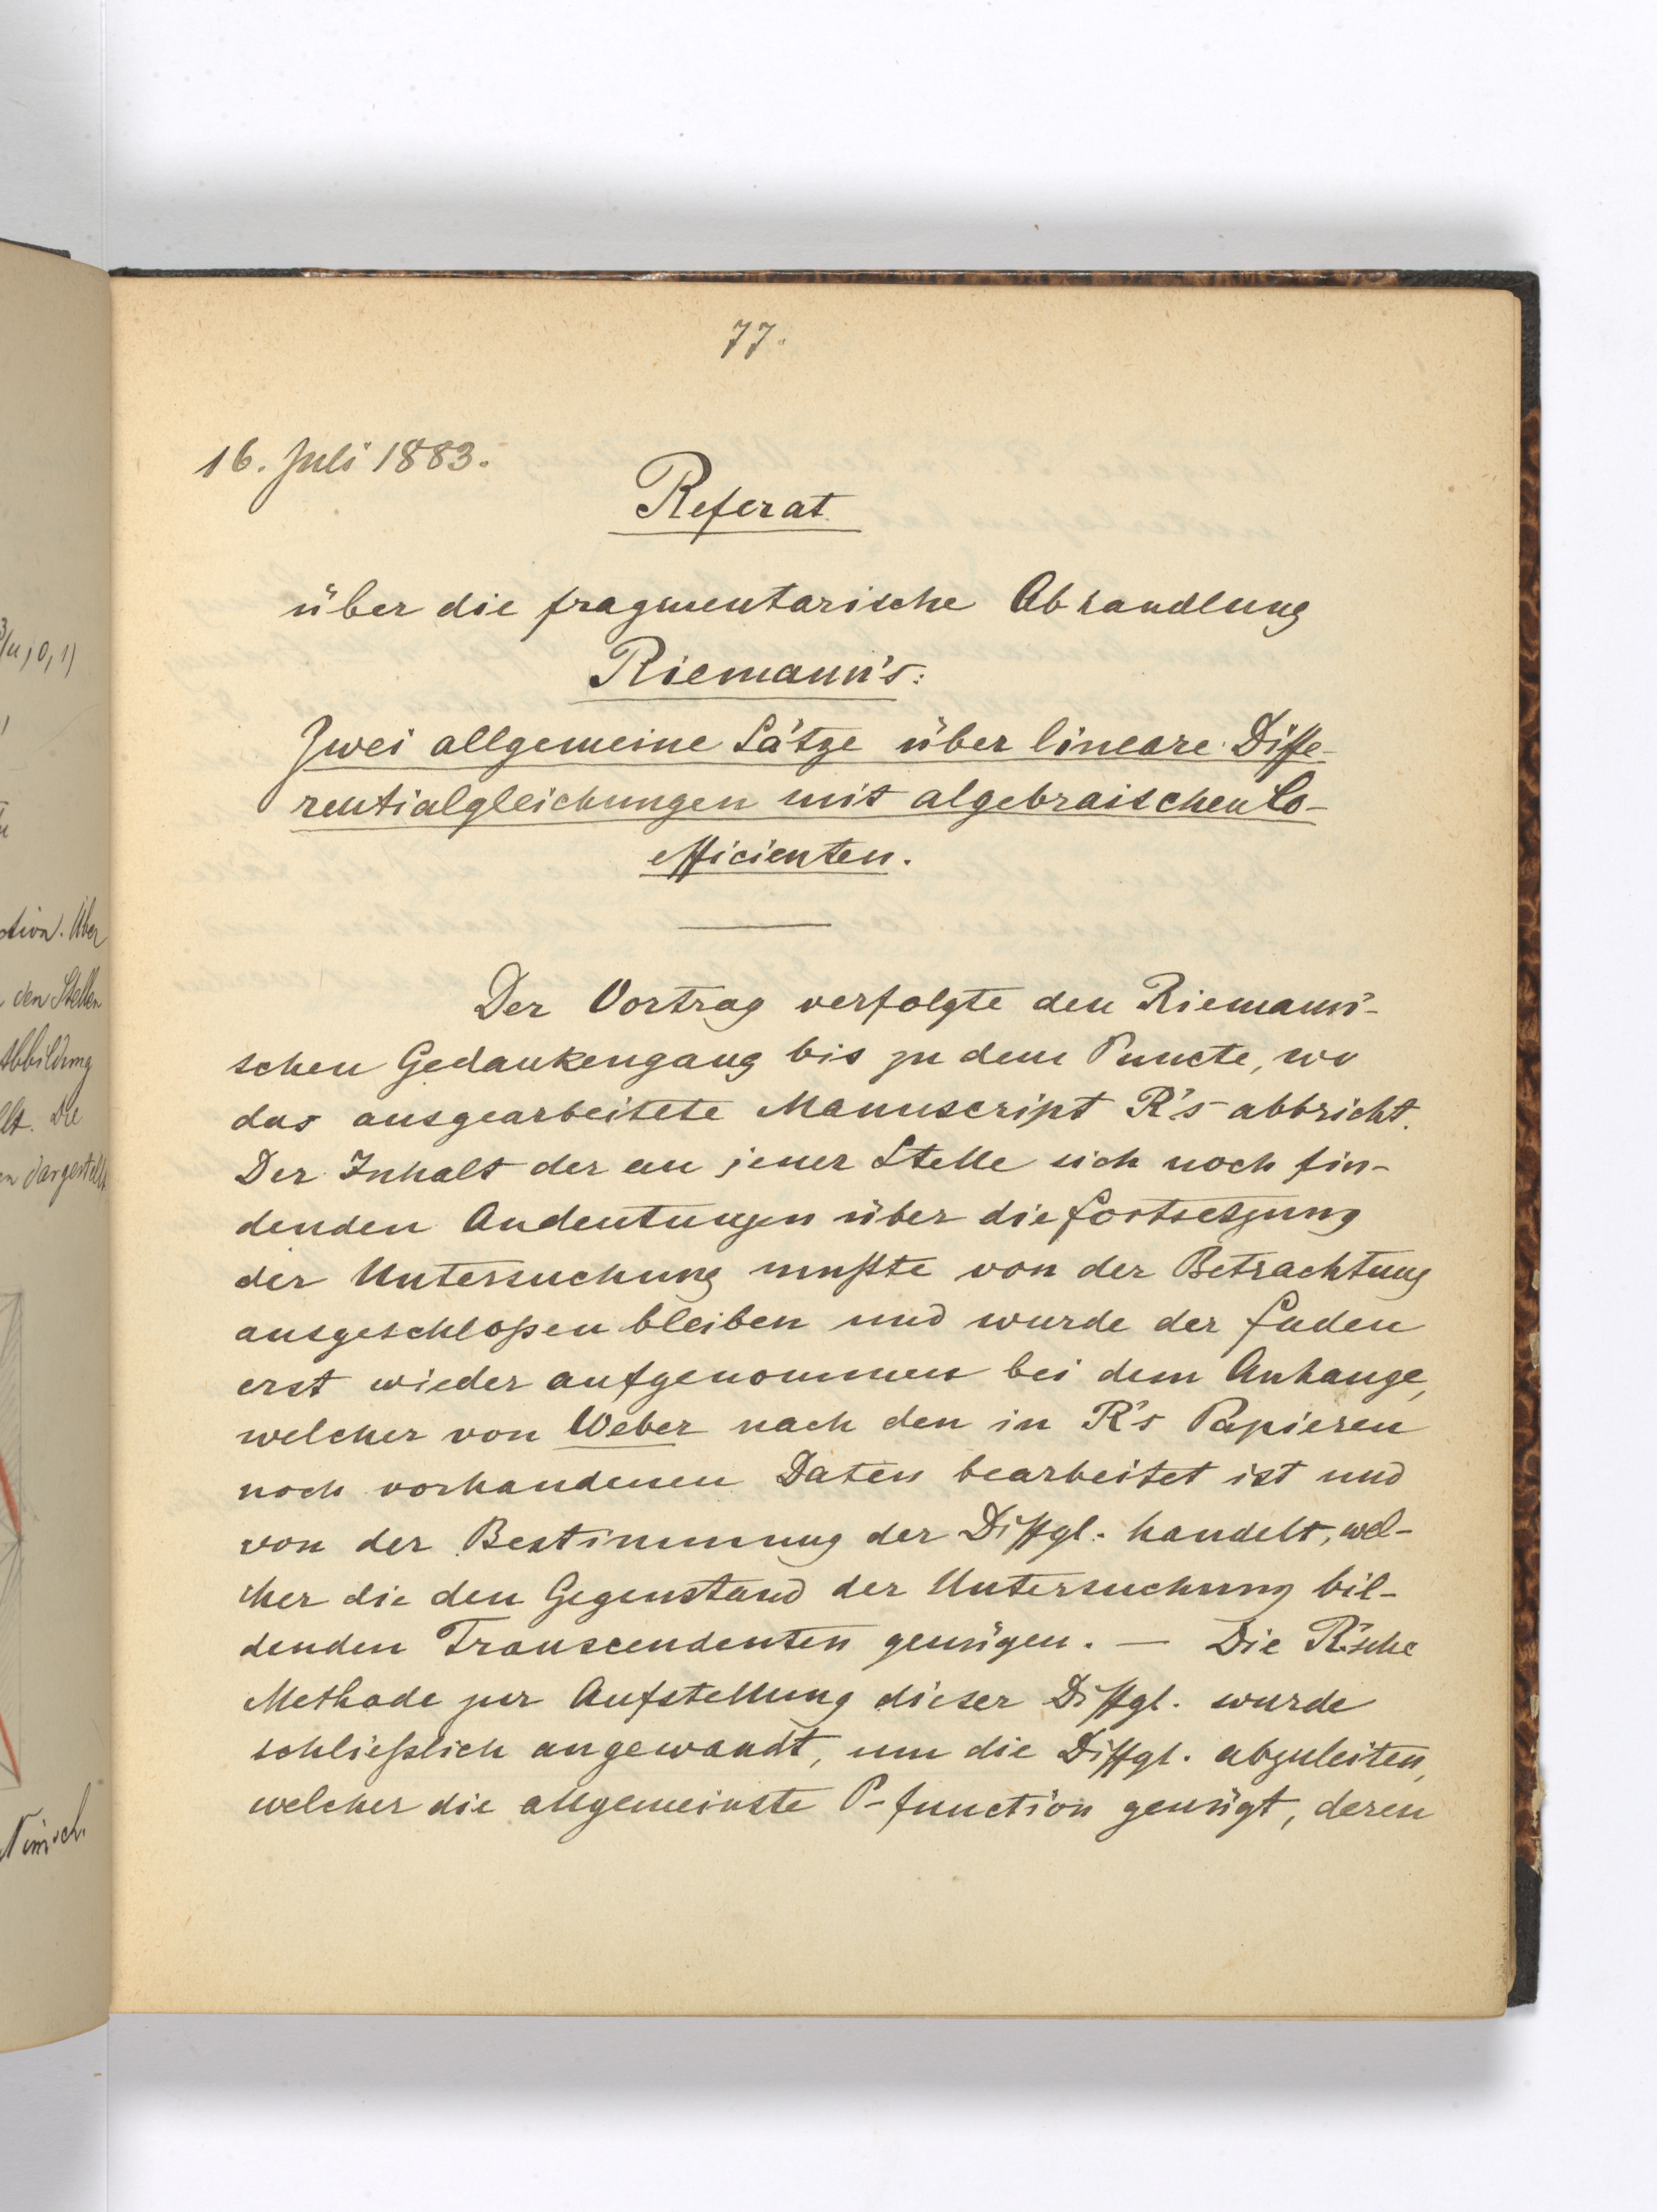 77.
16. Juli 1883.
Referat
über die fragmentarische Abhandlung
Riemann's:
Zwei allgemeine Sätze über lineare Diffe-
rentialgleichungen mit algebraischen Co-
efficienten.
Der Vortrag verfolgte den Riemann'-
schen Gedankengang bis zu dem Puncte, wo
das ausgearbeitete Manuscript R's abbricht.
Der Inhalt der an jener Stelle sich noch fin-
denden Andeutungen über die Fortsetzung
der Untersuchung mußte von der Betrachtung
ausgeschloßen bleiben und wurde der Faden
erst wieder aufgenommen bei dem Anhange,
welcher von Weber nach den in R's Papieren
noch vorhandenen Daten bearbeitet ist und
von der Bestimmung der Diffgl. handelt, wel-
cher die den Gegenstand der Untersuchung bil-
denden Transcendenten genügen. — Die R.'sche
Methode zur Aufstellung dieser Diffgl. wurde
schließlich angewandt, um die Diffgl. abzuleiten,
welcher die allgemeinste P-function genügt, deren
/u, 0, 1)
ction. Über
den Stellen
Abbildung
lt. Die
en dargestellt